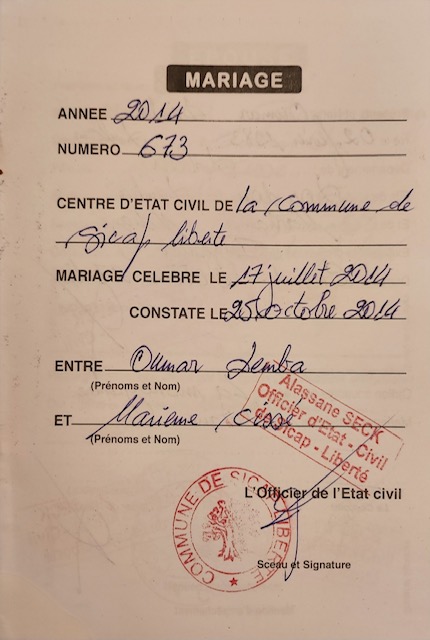 MARIAGE
ANNEE 2014
NUMERO 673
CENTRE D'ETAT CIVIL DE la Commune de
Sicap liberte
MARIAGE CELEBRE LE 17 juillet 2014
CONSTATE LE 25 Octobre 2014
ENTRE Oumar Demba
(Prénoms et Nom)
ET Marieme Cissé
(Prénoms et Nom)
Alassane SECK
Officier d'Etat - Civil
de Sicap - Liberté
L'Officier de l'Etat civil
COMMUNE DE SICAP LIBERTE
Sceau et Signature